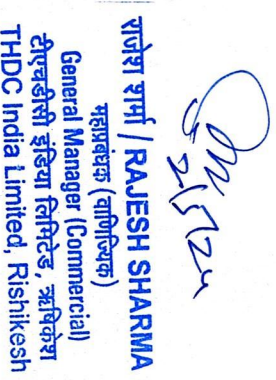 2/5/24
राजेश शर्मा / RAJESH SHARMA
महाप्रबंधक (वाणिज्यिक)
General Manager (Commercial)
टीएचडीसी इंडिया लिमिटेड, ऋषिकेश
THDC India Limited, Rishikesh